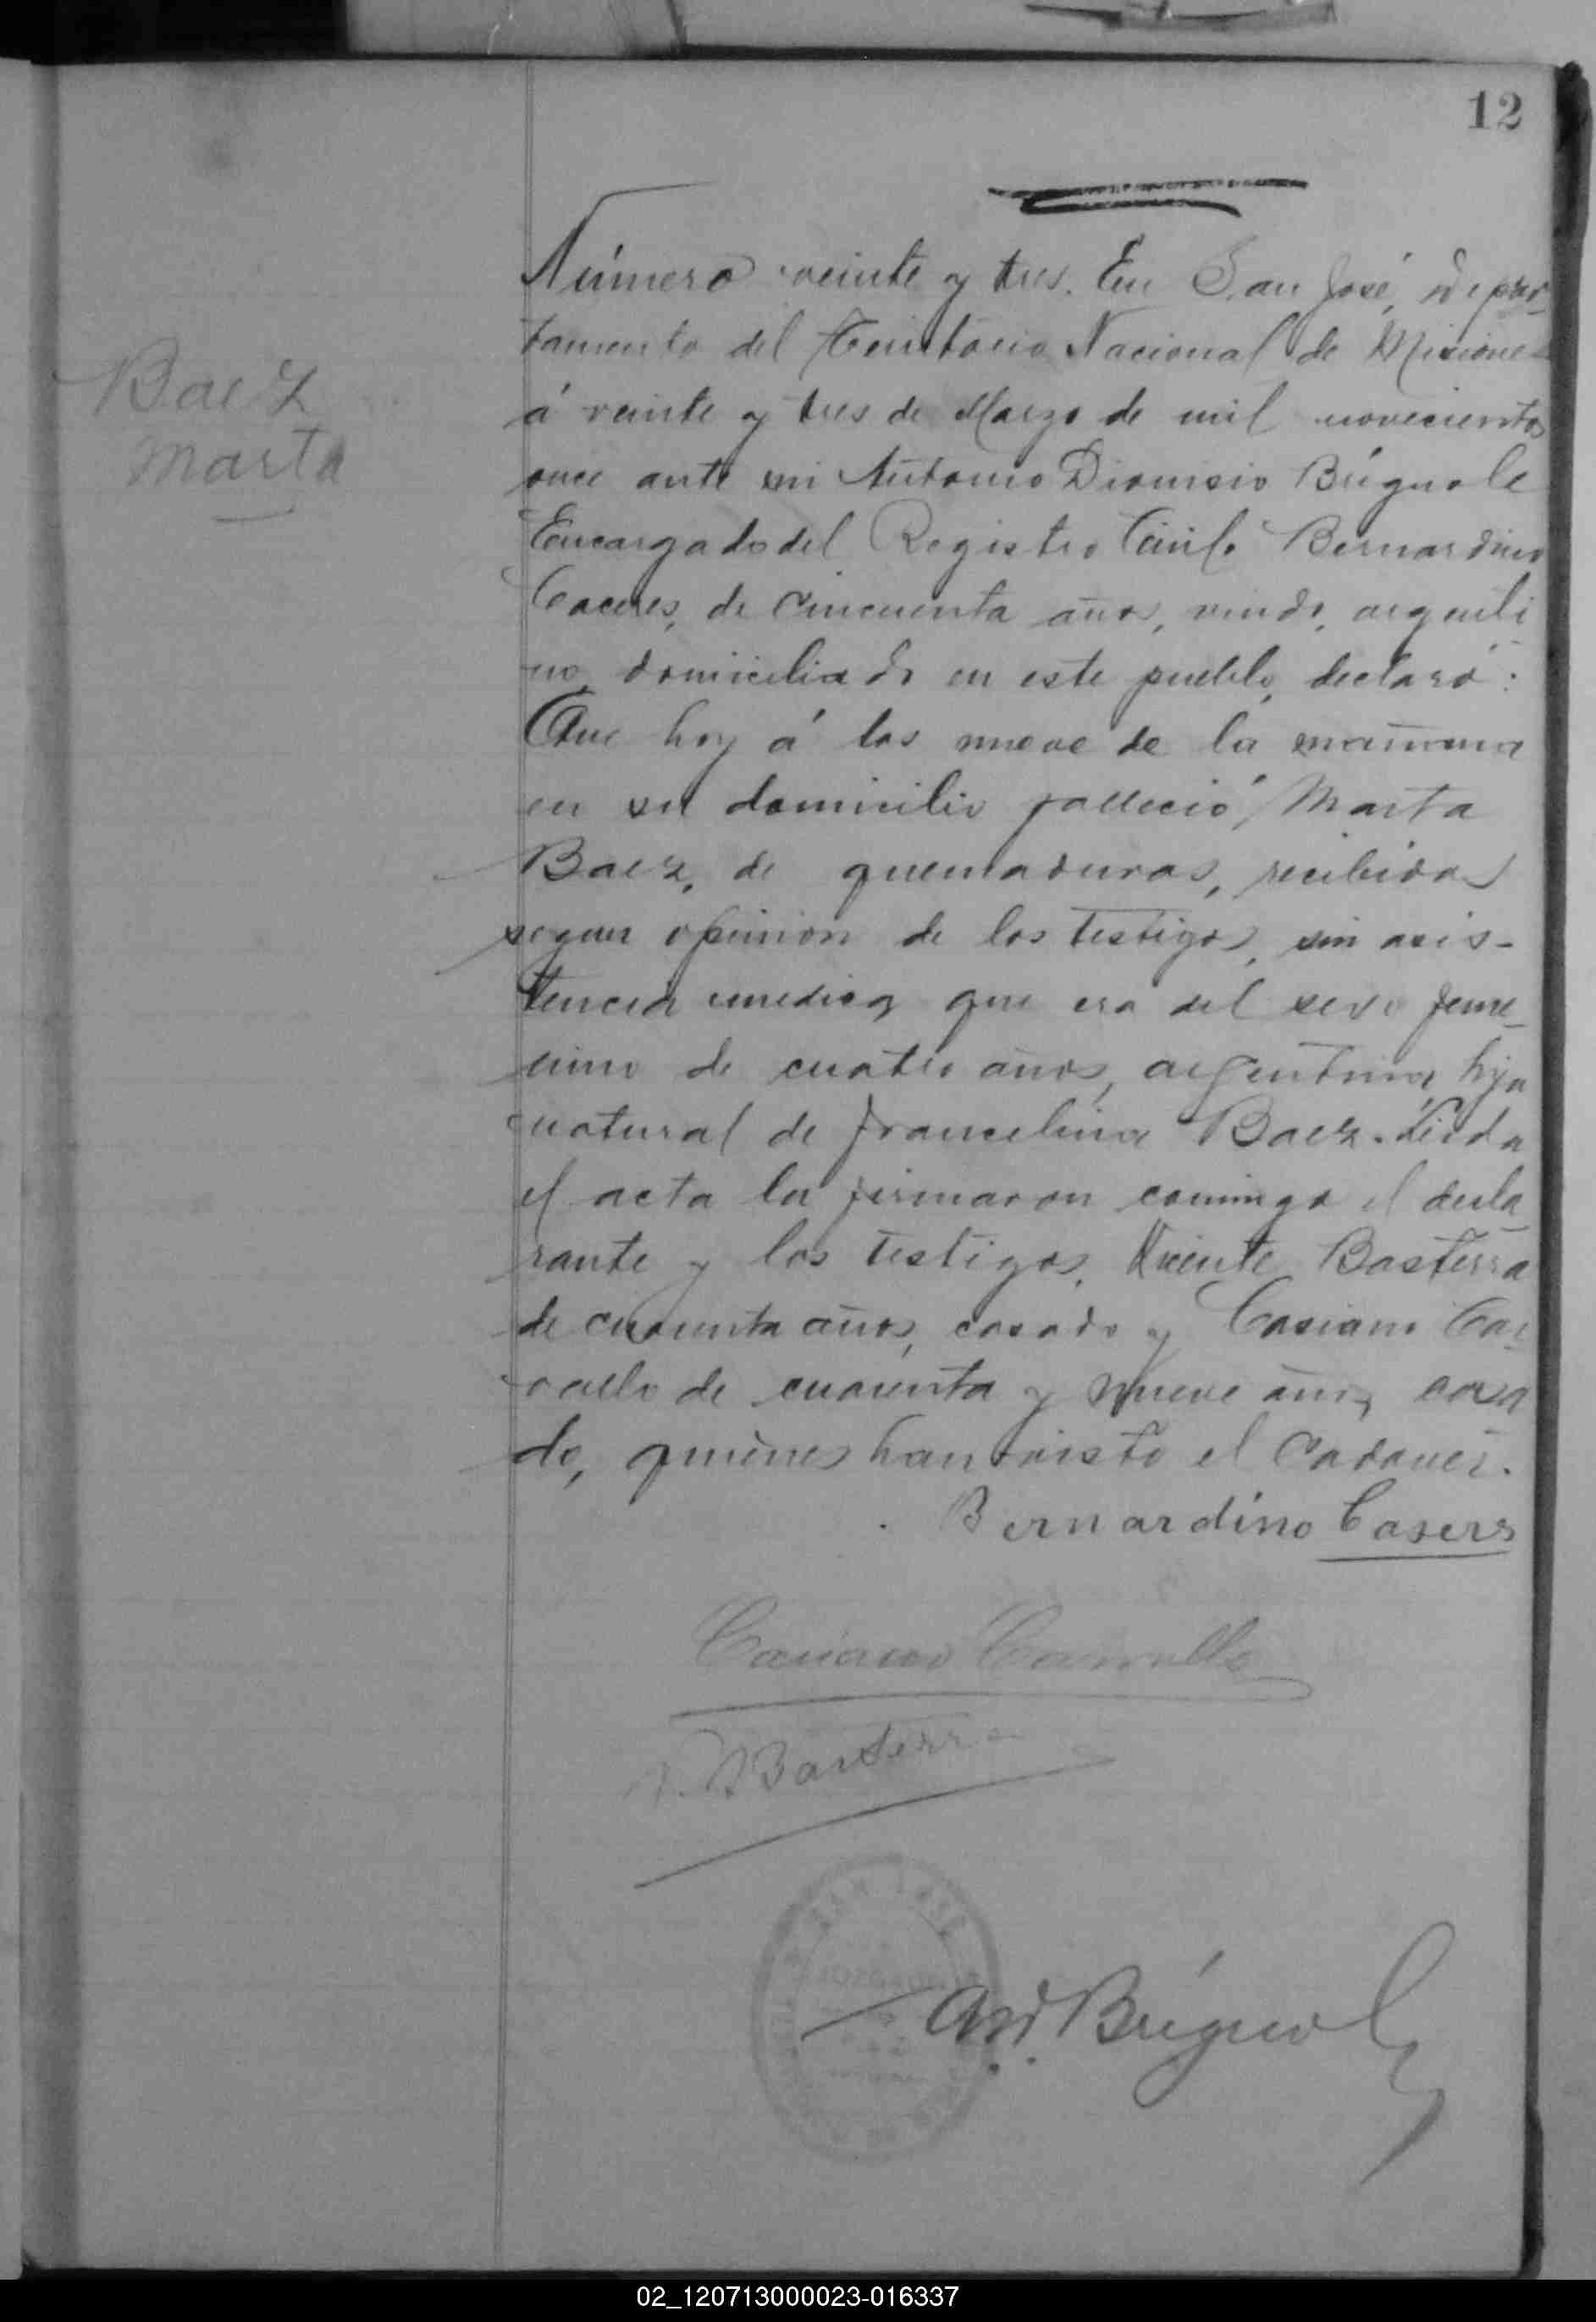 12
Baez
Marta
Número veinte y tres. En San José, Depar-
tamento del Territorio Nacional de Misiones
á veinte y tres de Marzo de mil novecientos
once ante mi Antonio Dionisio Brignole
Encargado del Registro Civil, Bernardino
Caceres, de cincuenta años, viudo,
no domiciliado en este pueblo, declaró:
Que hoy á las nueve de la mañana
en su domicilio falleció Marta
Baez, de quemaduras, recibidas
segun opinion de los testigos, sin asis-
tencia medica, que era del sexo feme-
nino de cuatro años, argentina, hija
natural de Francelina Baez. Leida
el acta la firmaron conmigo el decla-
rante y los testigos, Vicente Basterra
de cuarenta años, casado y Casiano Car-
vallo de cuarenta y nueve años, casa
do, quienes han visto el cadaver.
Bernardino Casers
Casiano Carvallo
V. Basterra
SAN JOSÉ
JUZGADO
A.D. Brignole
02_120713000023-016337